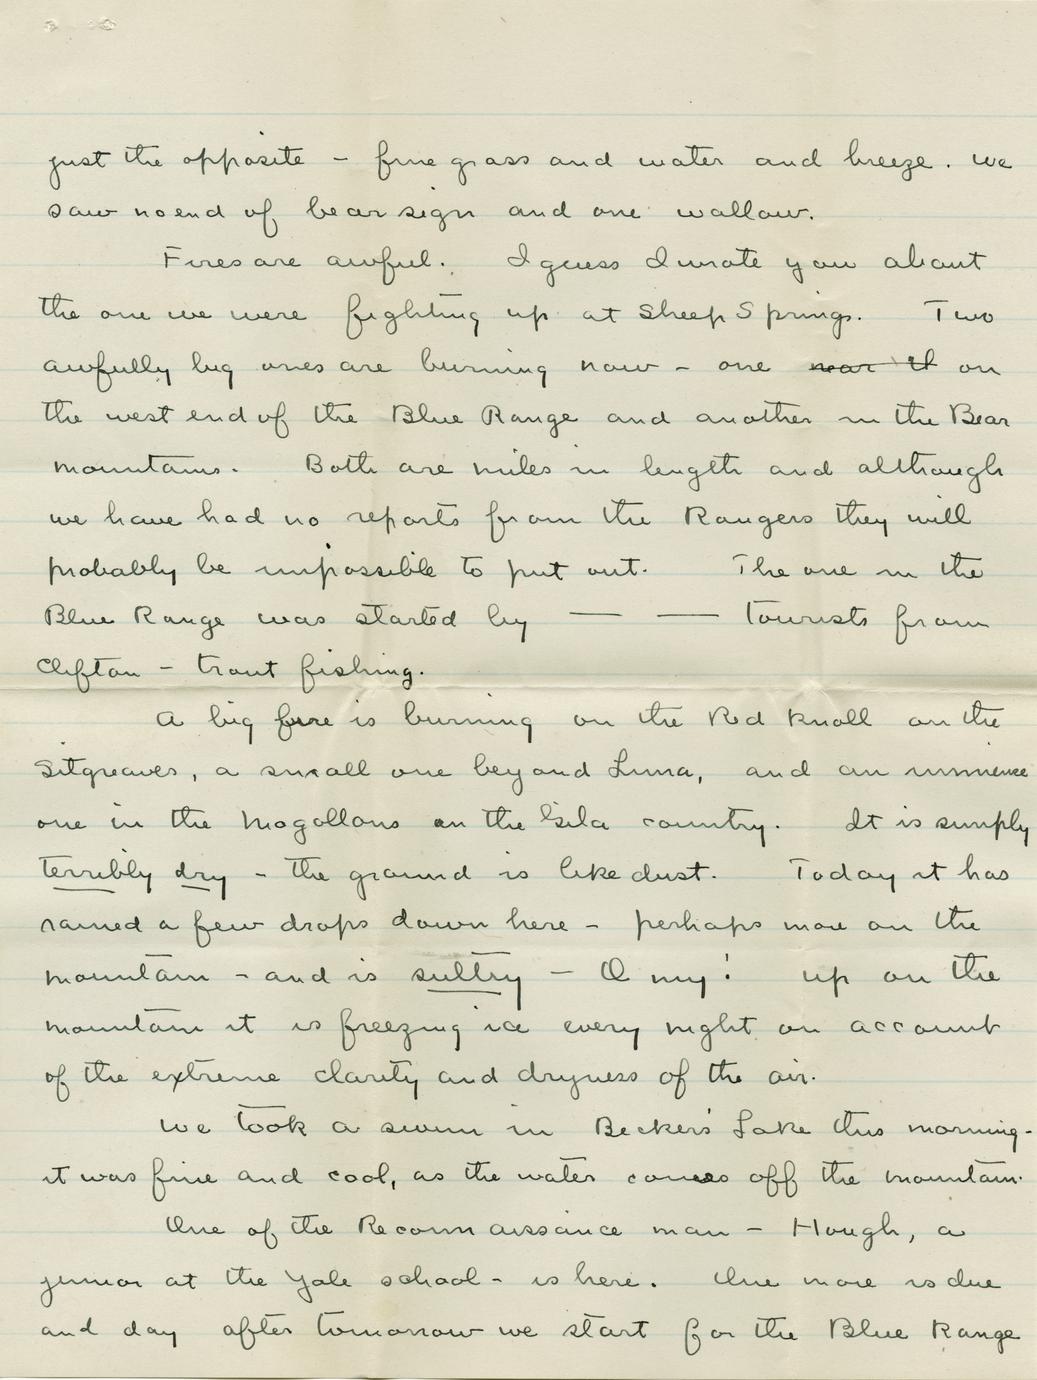 just the opposite - fine grass and water and breeze. We
saw no end of bear sign and one wallow.
Fires are awful. I guess I wrote you about
the one we were fighting up at Sheep Springs. Two
awfully big ones are burning now - one near it on
the west end of the Blue Range and another in the Bear
mountains. Both are miles in length and although
we have had no reports from the Rangers they will
probably be impossible to put out. The one in the
Blue Range was started by — — tourists from
Clifton - trout fishing.
A big fire is burning on the Red Knoll on the
Sitgreaves, a small one beyond Luna, and an immense
one in the Mogollons on the Gila country. It is simply
terribly dry - the ground is like dust. Today it has
rained a few drops down here - perhaps more on the
mountain - and is sultry - O my! up on the
mountain it is freezing ice every night on account
of the extreme clarity and dryness of the air.
We took a swim in Becker's Lake this morning -
it was fine and cool, as the water comes off the mountain.
One of the Reconnaissance man - Hough, a
junior at the Yale school - is here. One more is due
and day after tomorrow we start for the Blue Range